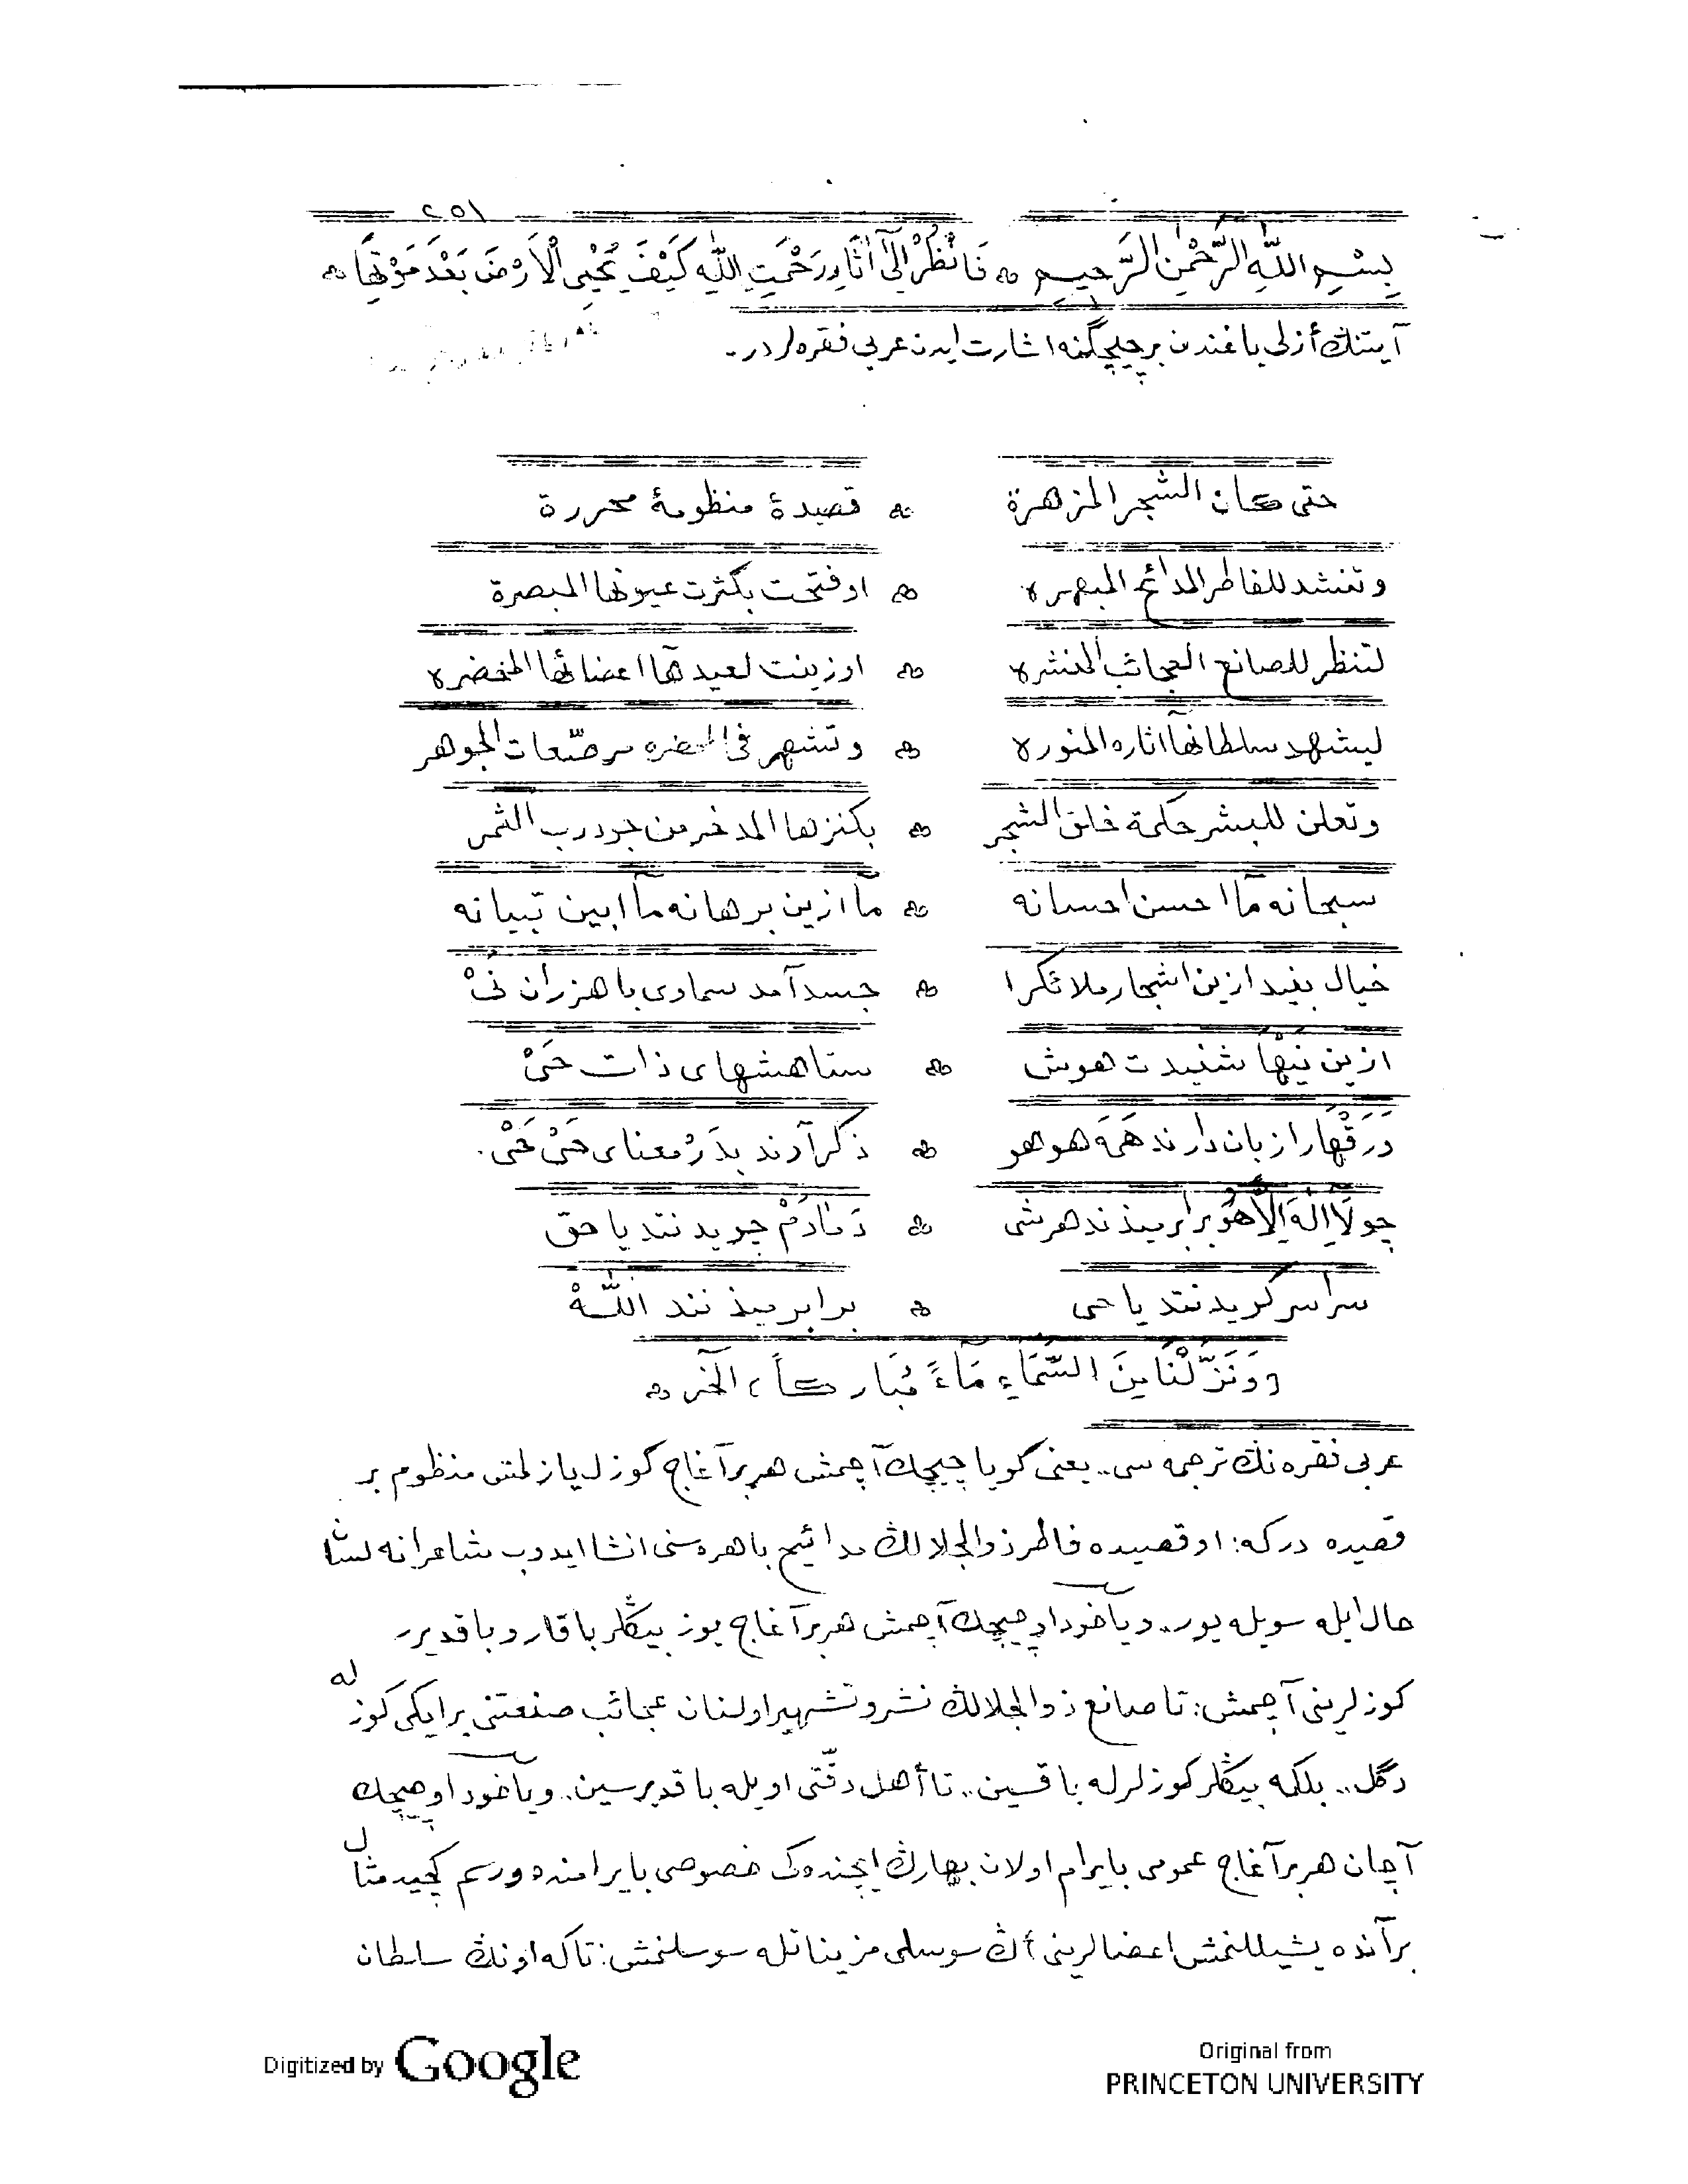 ٢٥١
بِسْمِ اللّٰهِ الرَّحْمٰنِ الرَّحِيمِ ۞ فَانْظُرْ اِلٰٓى اٰثَارِ رَحْمَتِ اللّٰهِ كَيْفَ يُحْيِى الْاَرْضَ بَعْدَ مَوْتِهَا ۞
آيتنڭ أزلى باغندن بر چيچگنه اشارت ايدن عربى فقره لردر.
حتى كان الشجر المزهرة ۞ قصيدة منظومة محررة
وتنشد للفاطر المدائح المبهره ۞ او فتحت بكثرت عيونها المبصرة
لتنظر للصانع العجائب المنشره ۞ او زينت لعيدها اعضائها المخضره
ليشهد سلطانها آثاره المنوره ۞ وتشهر فى المحضره مرصّعات الجوهر
وتعلن للبشر حكمة خلق الشجر ۞ بكنزها المدخر من جود رب الثمر
سبحانه مآ احسن احسانه ۞ مآ ازين برهانه مآ ابين تبيانه
خيال بيند ازين اشجار ملائكرا ۞ جسد آمد سماوى با هزران نَىْ
ازين نَيْهَا شنيدت هوش ۞ ستاهشهاى ذات حَىْ
وَرَقْهَارا زبان دارند هَمَه هو هو ۞ ذكر آرند بدَرْ معناى حَىْ حَىْ.
چو لَا اِلٰهَ اِلَّا هُو برابر ميذند هرشى ۞ دَمَادَمْ جويدنتد يا حق
سراسر كويدنتد يا حى ۞ برابر ميذنند اللّٰهْ
وَنَزَّلْنَا مِنَ السَّمَاءِ مَاءً مُبَارَكاً، الخر ۞
عربى فقره نڭ ترجمه سى.. يعنى كويا چيچك آچمش هر بر آغاج كوزل يازلمش منظوم بر
قصيده دركه: او قصيده فاطر ذو الجلالڭ مدائح باهره سنى انشا ايدوب شاعرانه لسان
حال ايله سويله يور.. ويآخود او چيچك آچمش هر بر آغاج يوز بيڭلر باقار و باقديرر
كوزلرينى آچمش: تا صانع ذو الجلالڭ نشر و تشهير اولنان عجائب صنعتنى بر ايكى كوزله
دگل.. بلكه بيڭلر كوزلرله باقسين.. تا أهل دقّتى اويله باقديرسين.. ويآخود او چيچك
آچان هر بر آغاج عمومى بايرام اولان بهارڭ ايچنده‌كى خصوصى بايرامنده و رسم كچيد مثال
بر آنده يشيللنمش اعضالرينى أڭ سوسلى مزيناتله سوسلنمش: تاكه اونڭ سلطان
Digitized by Google
Original from
PRINCETON UNIVERSITY